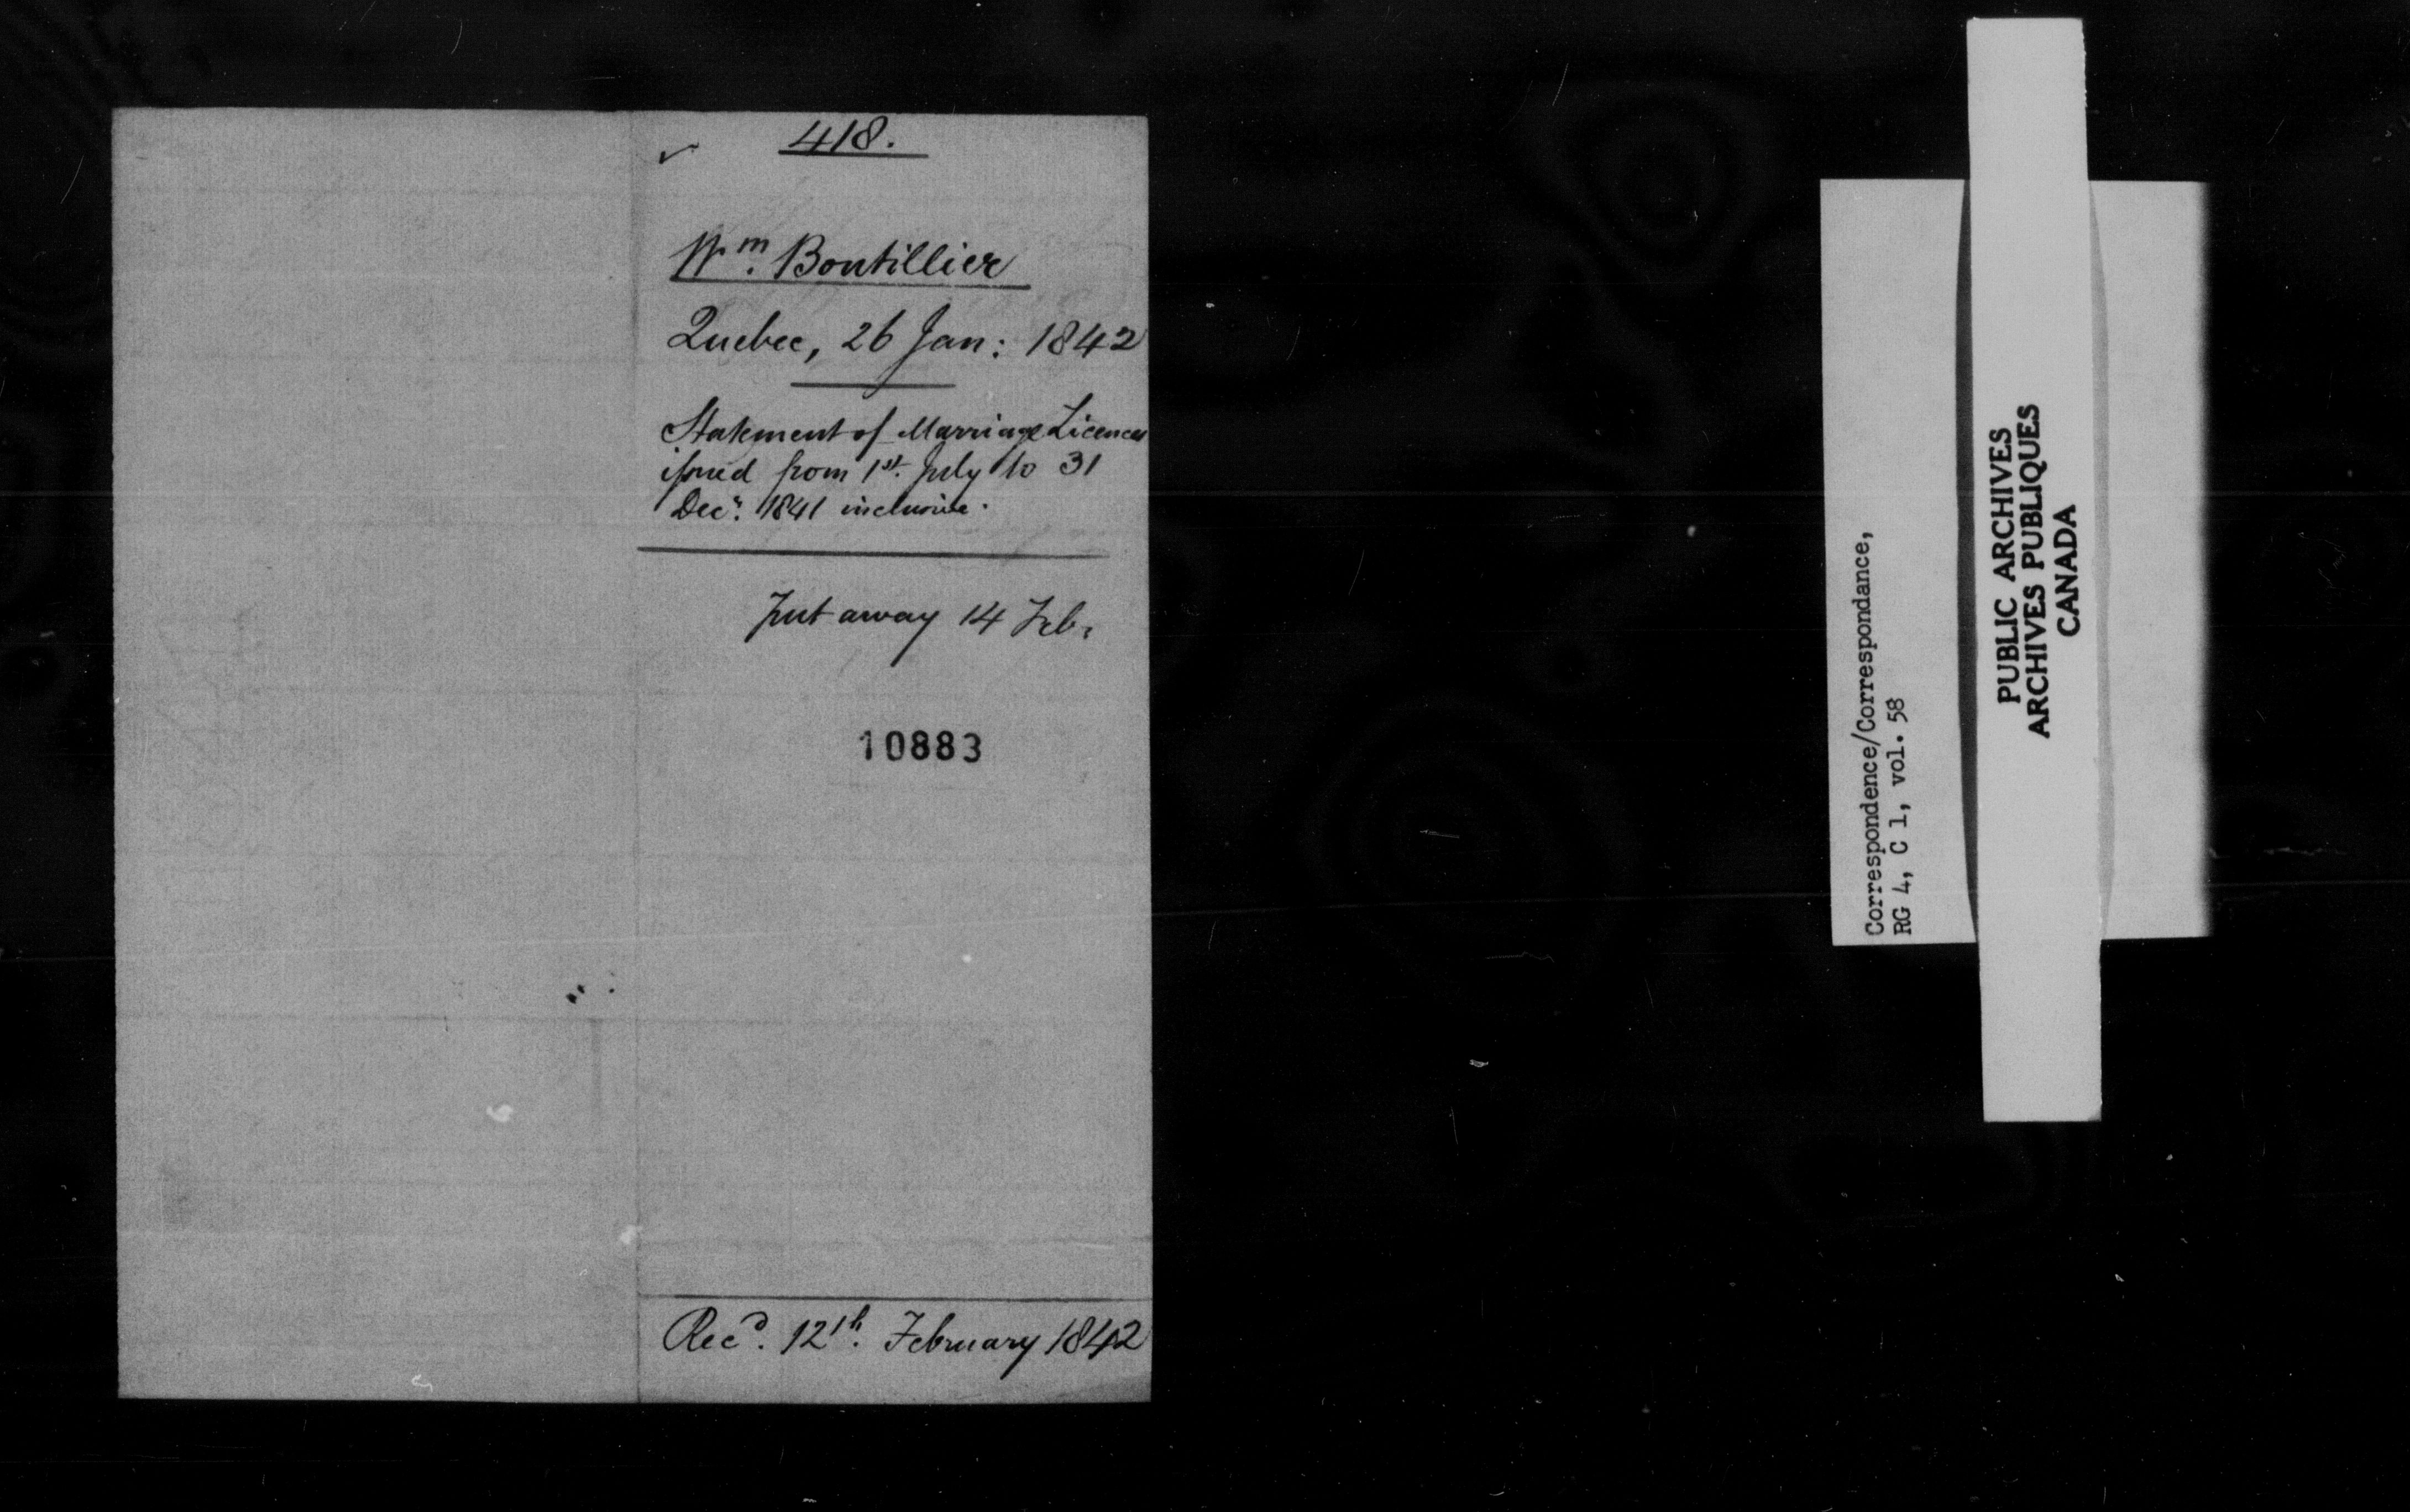 418.
Wm. Boutillier
Quebec, 26 Jan: 1842
Statement of Marriage Licences
issued from 1st. July to 31
Decr. 1841 inclusive.
Put away 14 Feb.
10883
Recd. 12th. February 1842
Correspondence/Correspondance,
RG 4, C 1, vol. 58
PUBLIC ARCHIVES
ARCHIVES PUBLIQUES
CANADA